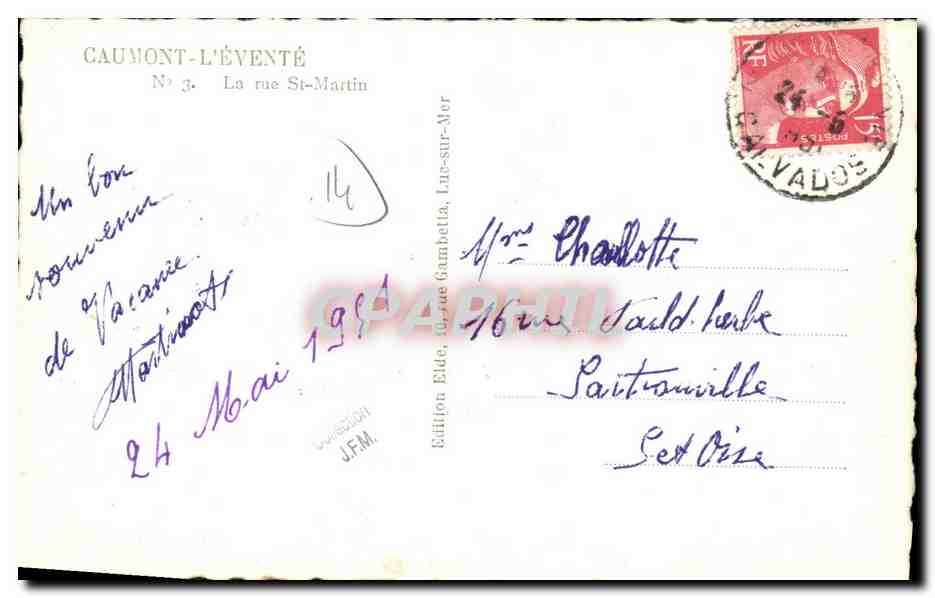 CAUMONT-L'ÉVENTÉ
Nº 3. La rue St-Martin
14
Un bon
souvenir
de Vacance.
24 Mai 1951
Collection
J.F.M.
Edition Elde, 10, rue Gambetta, Luc-sur-Mer
CPAPHIL
RF
15F
POSTES
24 -5
CALVADOS
Mme Charlotte
16 rue
Sartrouville
S et Oise